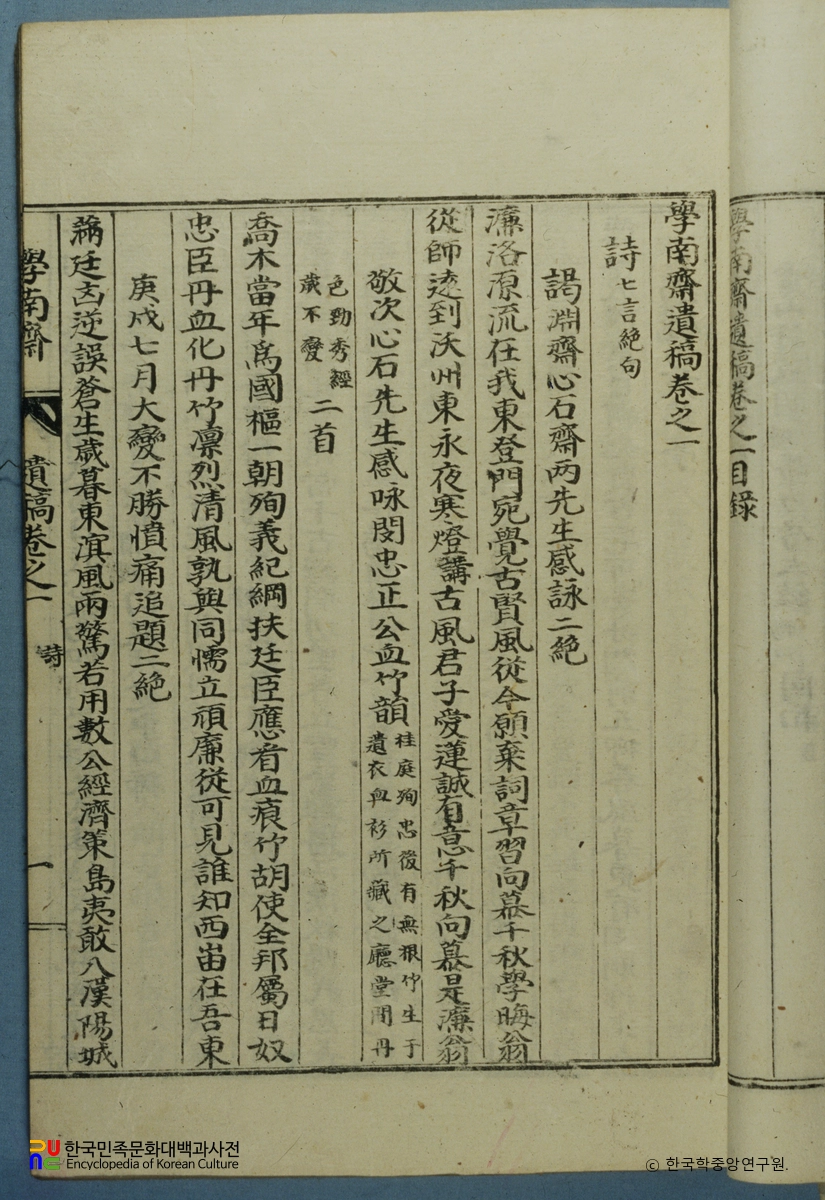 學南齋遺稿卷之一目錄
學南齋遺稿卷之一
詩 七言絕句
謁淵齋心石齋兩先生感詠二絶
濂洛源流在我東登門宛覺古賢風從今願棄詞章習向慕千秋學晦翁
從師遠到沃州東永夜寒燈講古風君子愛蓮誠有意千秋向慕是濂翁
敬次心石先生感咏閔忠正公血竹韻 桂庭殉忠後有無根竹生于
遺衣血衫所藏之廳堂間丹
色勁秀經
歲不變 二首
喬木當年爲國樞一朝殉義紀綱扶廷臣應看血痕竹胡使全邦屬日奴
忠臣丹血化丹竹凛烈清風孰與同懦立頑廉從可見誰知西崗在吾東
庚戌七月大變不勝憤痛追題二絶
滿廷凶逆誤蒼生歲暮東濱風雨驚若用數公經濟策島夷敢入漢陽城
學南齋 遺稿卷之一 詩 一
한국민족문화대백과사전
Encyclopedia of Korean Culture
ⓒ 한국학중앙연구원.